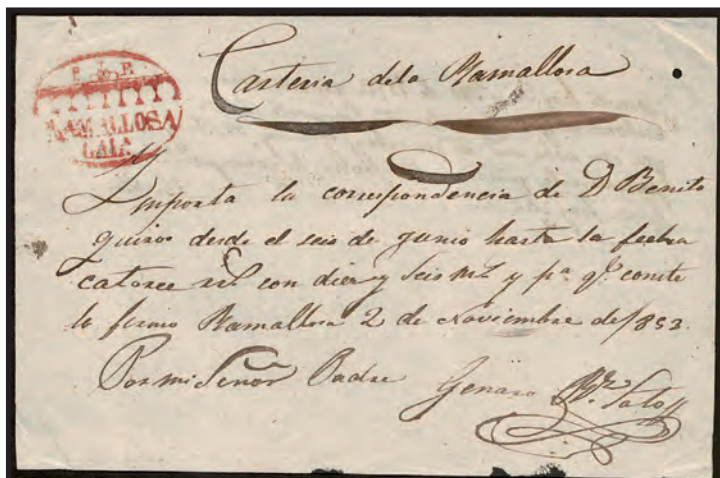 P. L. P.
RAMALLOSA
GALA
Carteria de la Ramallosa
Importa la correspondencia de D Benito
quiros desde el seis de Junio hasta la fecha
catorce rs con diez y seis mrs y pa. qe. conste
lo firmo Ramallosa 2 de Noviembre de 1853.
Por mi Señor Padre Genaro Soto